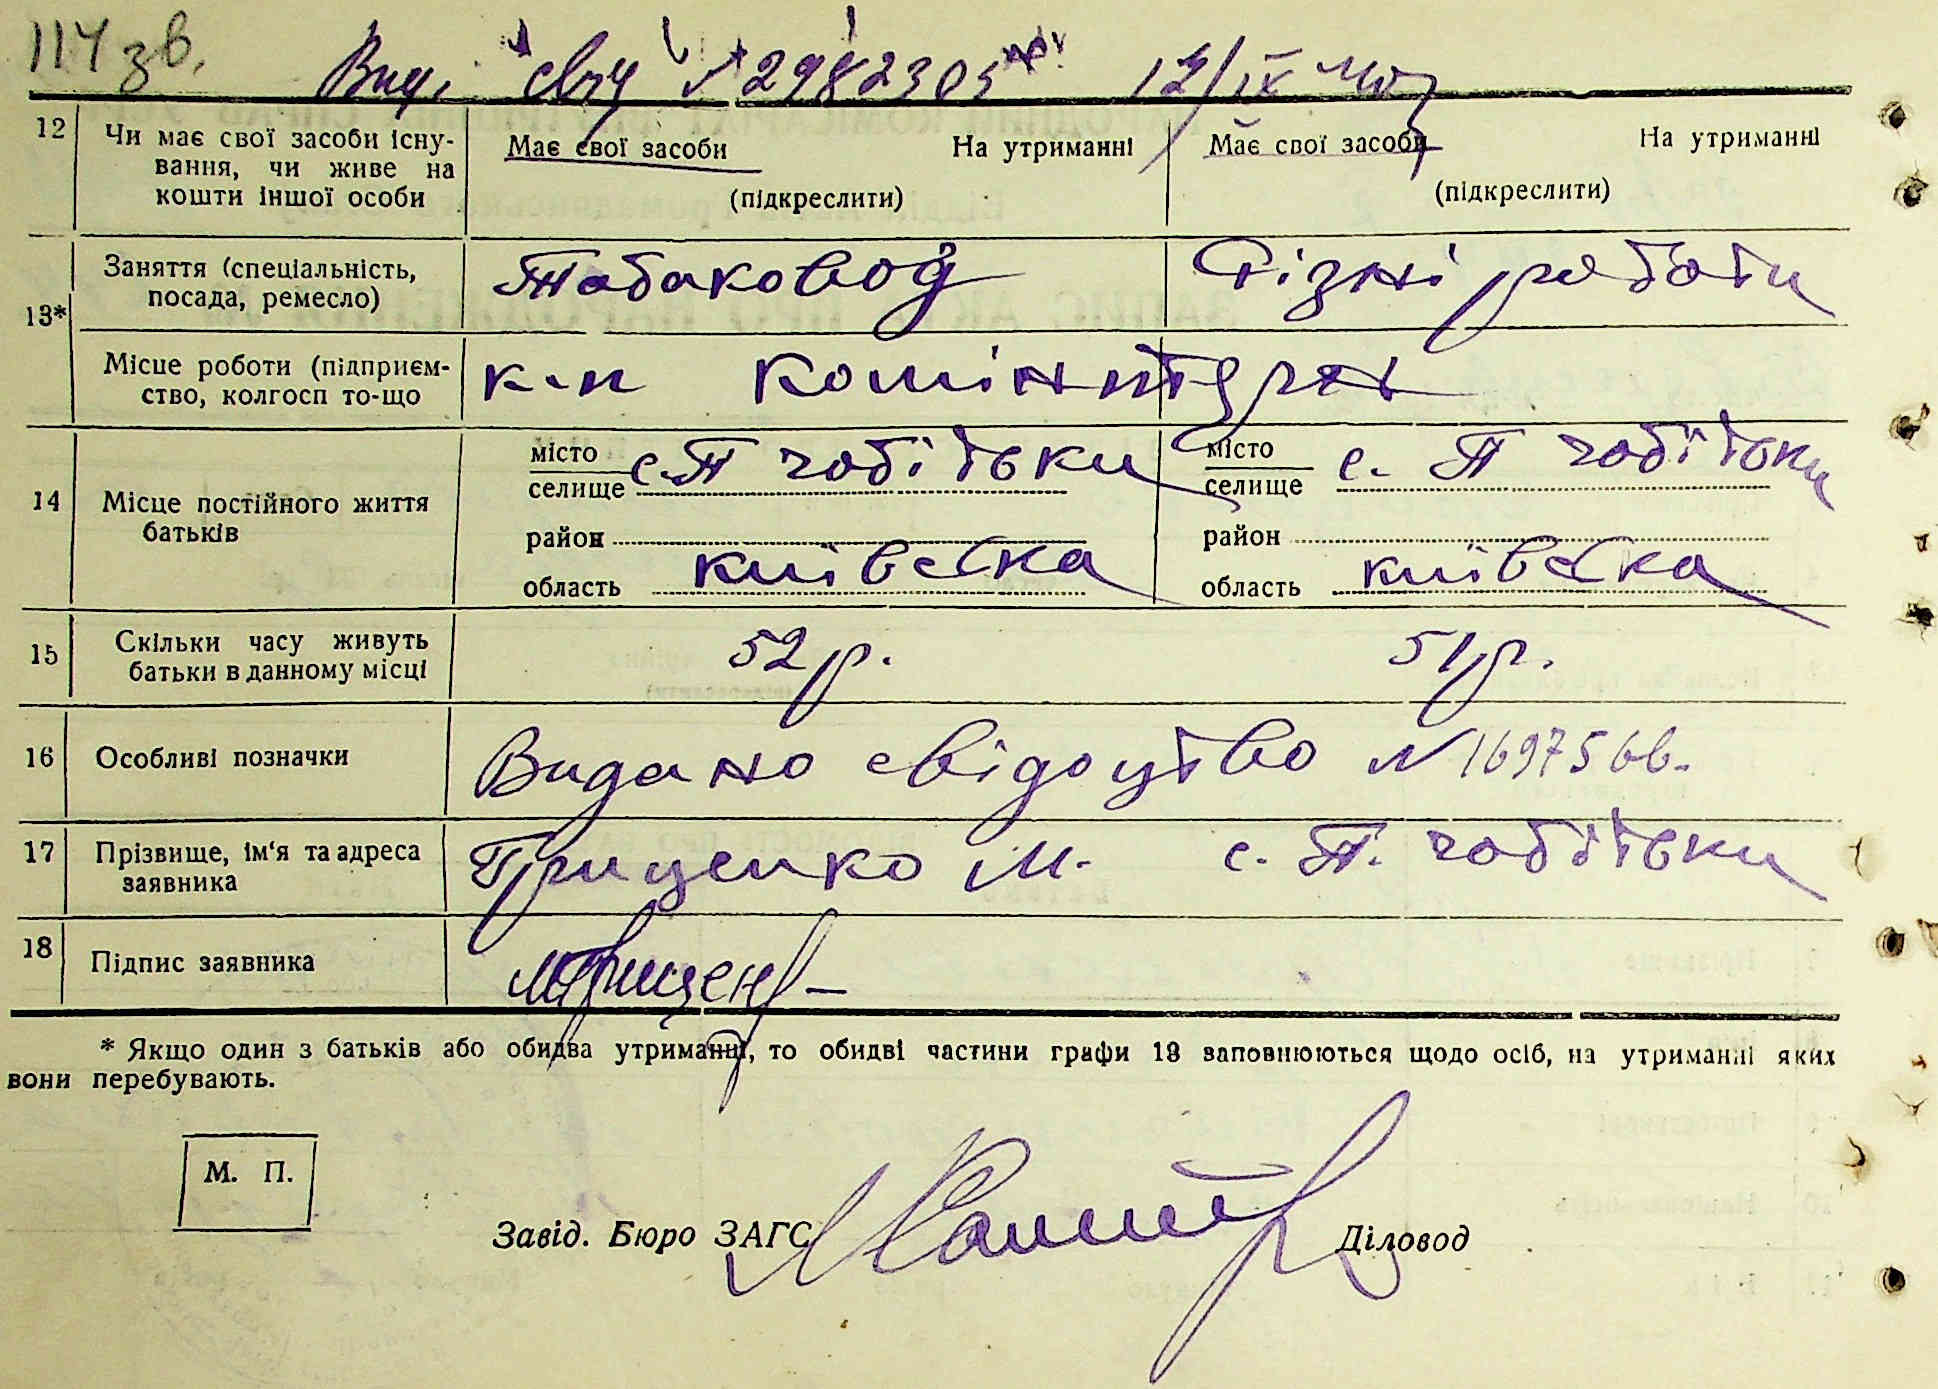 114 зв.
Вид. св-у № 2982305 12/IX
12 Чи має свої засоби існу-
вання, чи живе на
кошти іншої особи
Має свої засоби На утриманні
(підкреслити)
Має свої засоби На утриманні
(підкреслити)
13* Заняття (спеціальність,
посада, ремесло)
Табаковод
Різні роботи
Місце роботи (підприєм-
ство, колгосп то-що
к-п Комінтерн
14 Місце постійного життя
батьків
місто
селище с. П чобітьки
район
область київська
місто
селище с. П чобітьки
район
область київська
15 Скільки часу живуть
батьки в данному місці
52 р.
51 р.
16 Особливі позначки
Видано свідоцтво № 1697566.
17 Прізвище, ім'я та адреса
заявника
Гриценко М. с. П. чобітьки
18 Підпис заявника
МГрицен
* Якщо один з батьків або обидва утриманні, то обидві частини графи 13 заповнюються щодо осіб, на утриманні яких
вони перебувають.
М. П.
Завід. Бюро ЗАГС
Діловод